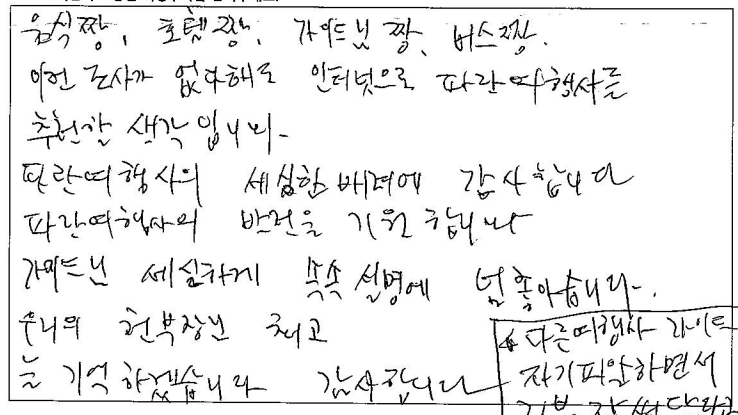 음식짱, 호텔짱, 가이드님 짱, 버스짱.
이런 조사가 없다해도 인터넷으로 파란여행사를
추천할 생각입니다-
파란여행사의 세심한 배려에 감사합니다
파란여행사의 발전을 기원합니다
가이드님 세실하게 쏙쏙 설명에 넘 좋아습니다.
우리의 현부장님 최고
늘 기억하겠습니다 감사합니다
다른여행사 가이드
자기피알하면서